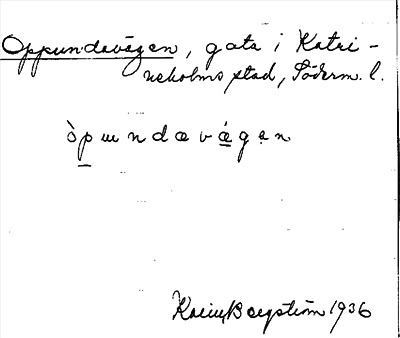 Oppundavägen, gata i Katri-
neholms stad, Söderm. l.
òpundavágen
Karin Bergström 1936